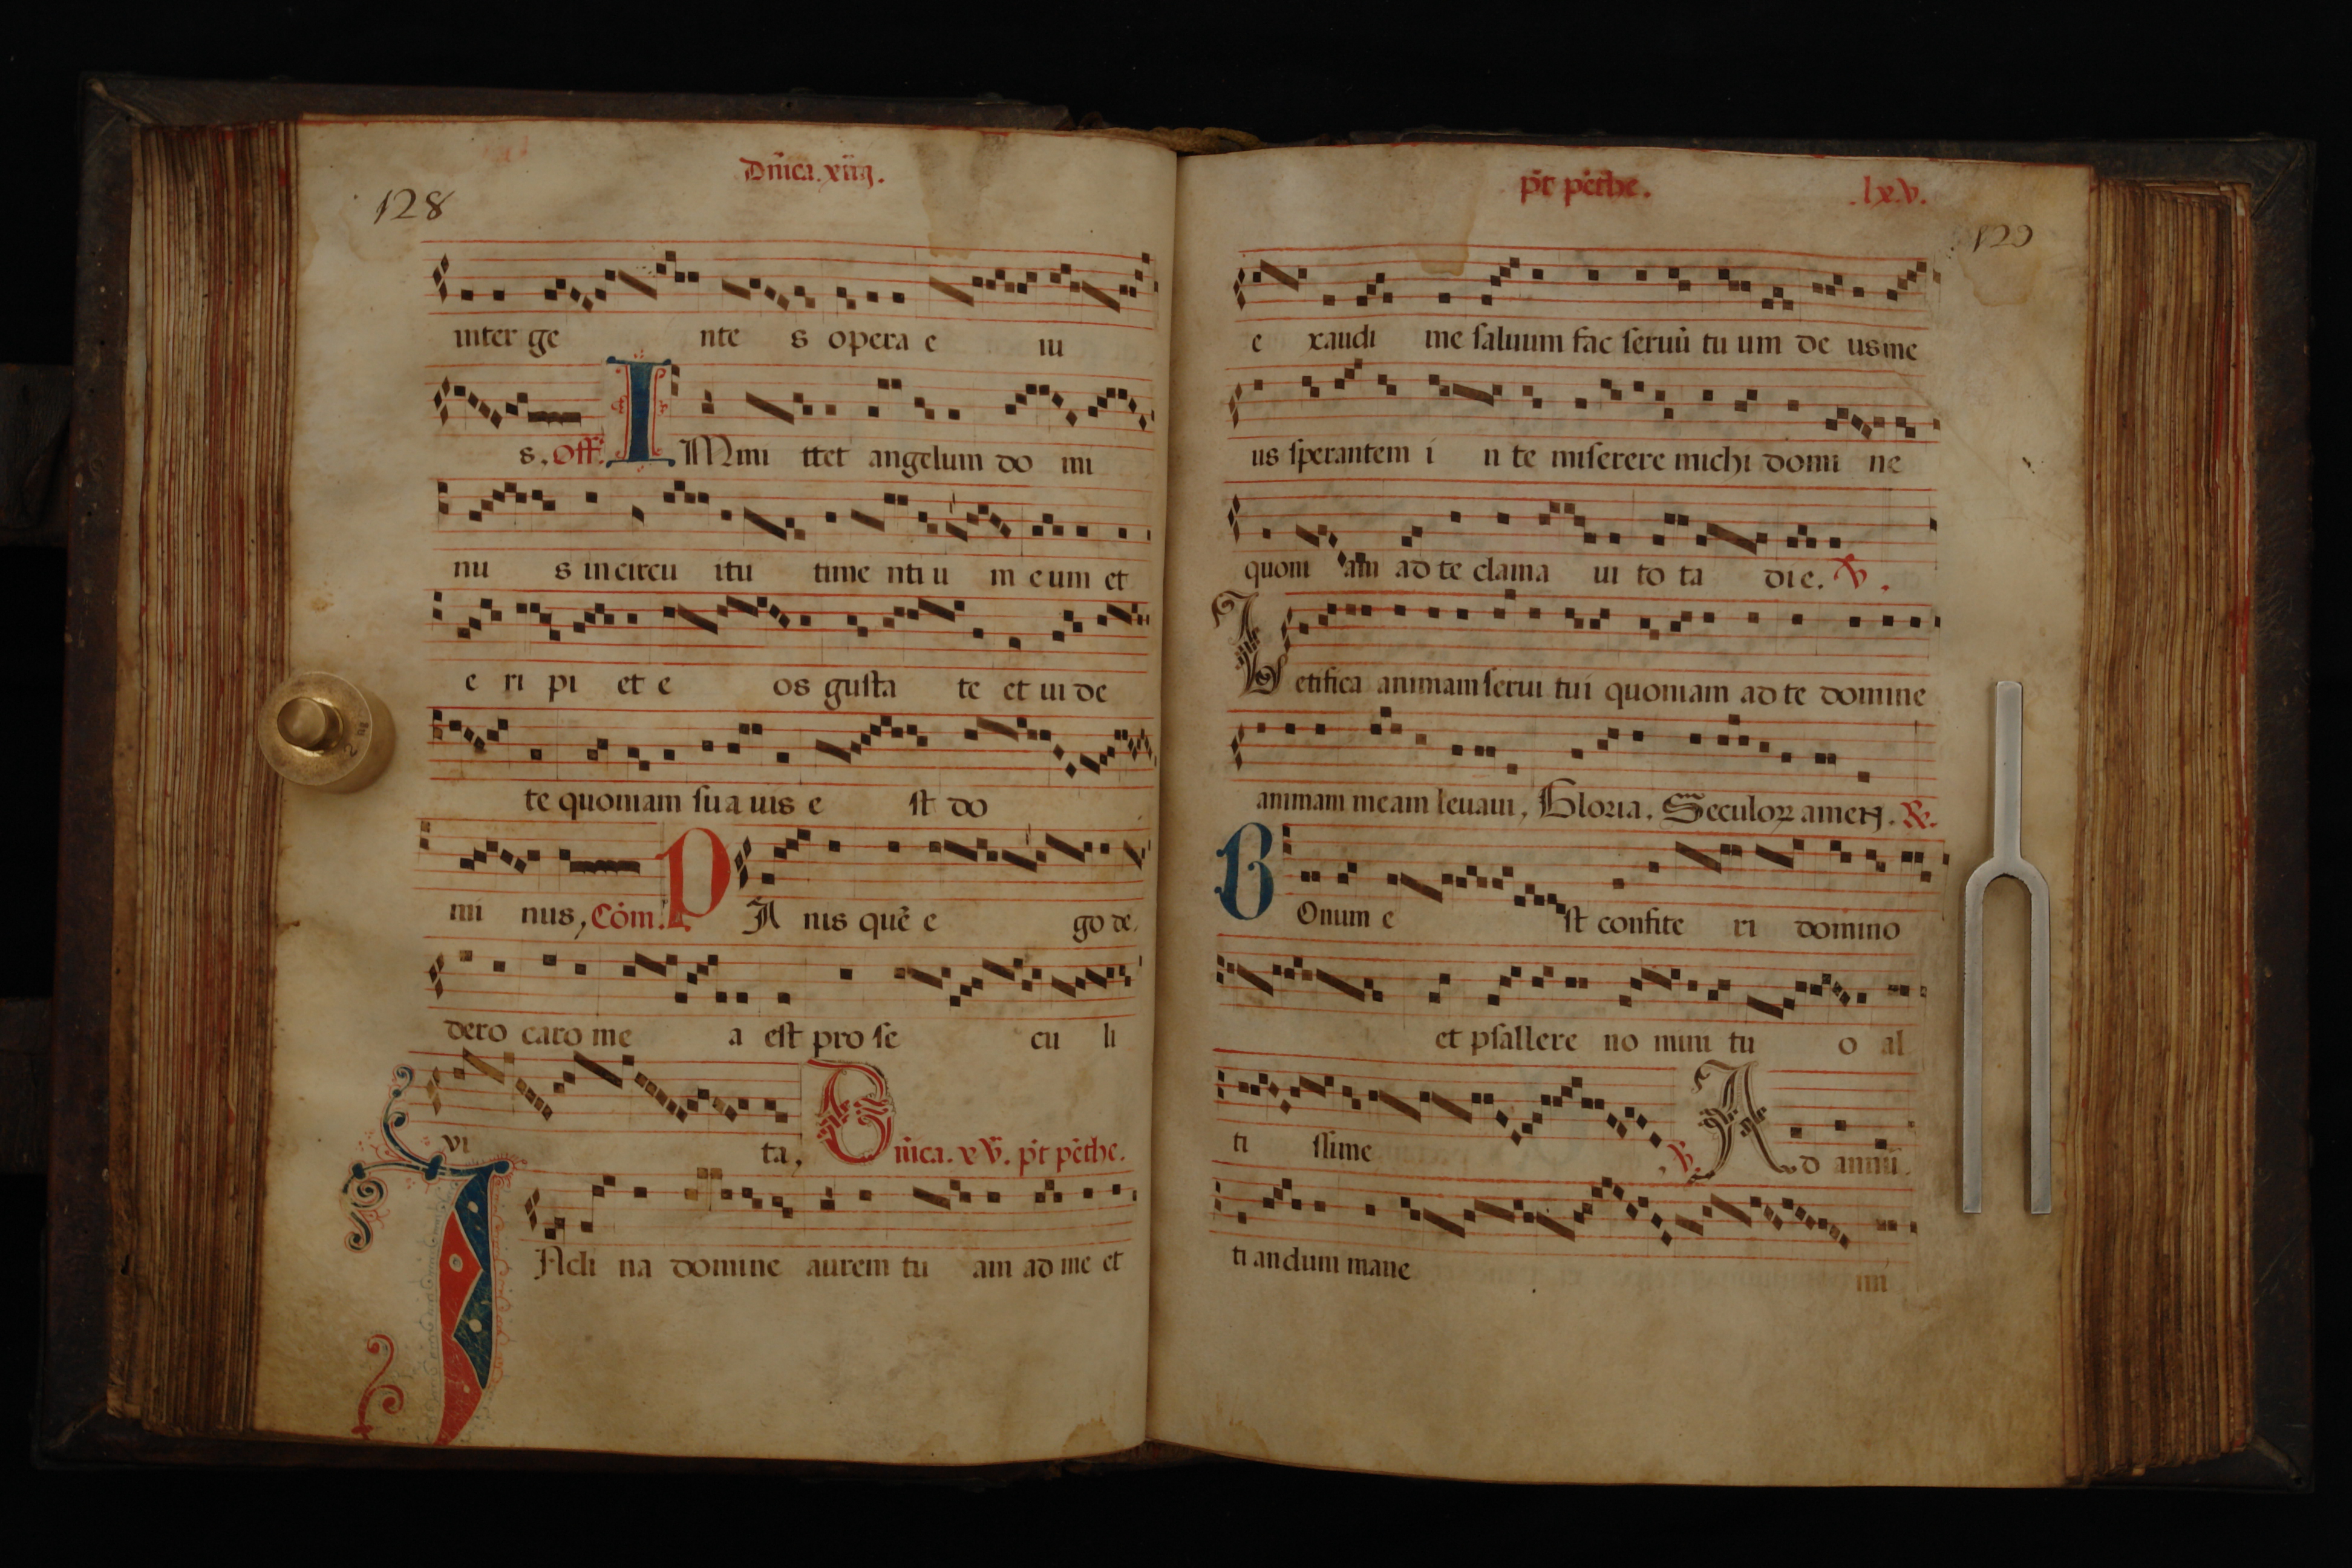 128
Dñica. xiiij.
inter ge nte s opera e iu
s. Off. I Mmi ttet angelum do mi
nu s in circu itu time nti u m e um et
e ri pi et e os gusta te et ui de
te quoniam sua uis e st do
mi nus, Cōm. P A nis quē e go de
dero caro me a est pro se cu li
vi ta, Dñica. xv. p̄t pēthe.
I Ncli na domine aurem tu am ad me et
p̄t pēthe. .lxv.
129
e xaudi me saluum fac seruū tu um de us me
us sperantem i n te miserere michi domi ne
quoni am ad te clama ui to ta di e. V.
L etifica animam serui tui quoniam ad te domine
animam meam leuaui, Gloria. Seculoꝝ amen. R.
B Onum e st confite ri domino
et psallere no mini tu o al
ti ssime .V. A d annū
ti andum mane mi